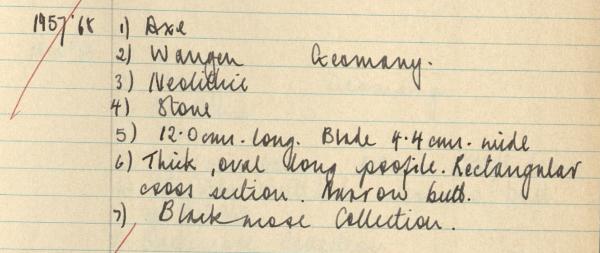 1957'68 1) Axe
2) Wangen Germany.
3) Neolithic
4) Stone
5) 12.0cms. long. Blade 4.4cms. wide
6) Thick, oval long profile. Rectangular
cross section. Narrow butt.
7) Blackmore Collection.